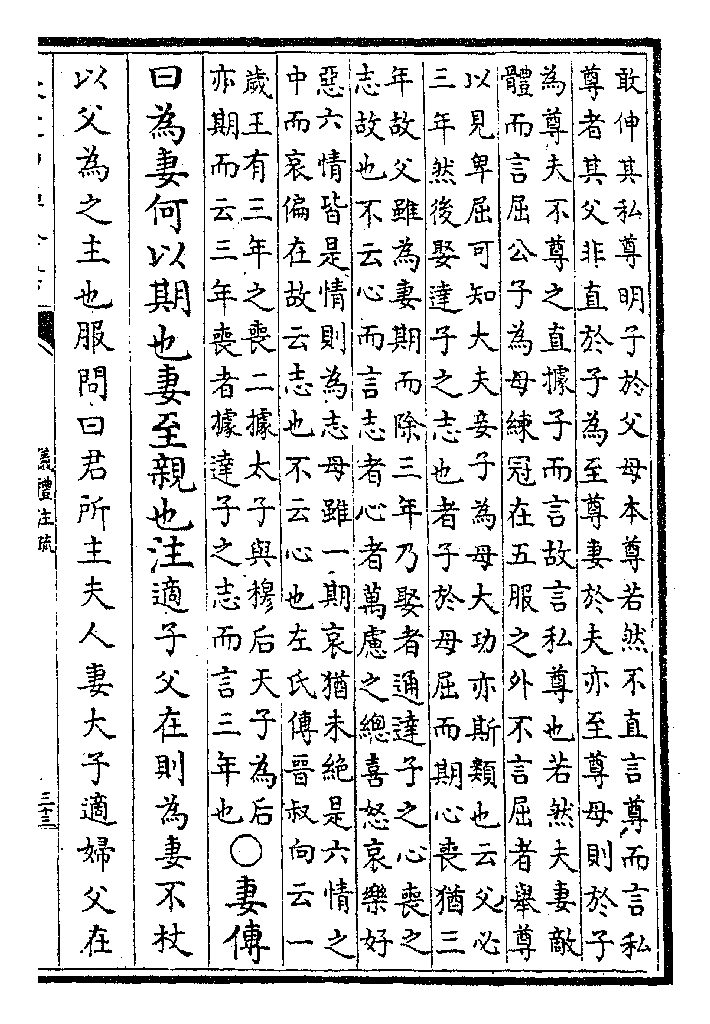 敢伸其私尊明子於父母本尊若然不直言尊而言私
尊者其父非直於子為至尊妻於夫亦至尊母則於子
為尊夫不尊之直據子而言故言私尊也若然夫妻敵
體而言屈公子為母練冠在五服之外不言屈者舉尊
以見卑屈可知大夫妾子為母大功亦斯類也云父必
三年然後娶達子之志也者子於母屈而期心喪猶三
年故父雖為妻期而除三年乃娶者通達子之心喪之
志故也不云心而言志者心者萬慮之總喜怒哀樂好
惡六情皆是情則為志母雖一期哀猶未絶是六情之
中而哀偏在故云志也不云心也左氏傳晉叔向云一
歲王有三年之喪二據太子與穆后天子為后
亦期而云三年喪者據達子之志而言三年也
〇妻傳
曰為妻何以期也妻至親也注適子父在則為妻不杖
以父為之主也服問曰君所主夫人妻大子適婦父在
儀禮注疏
三十三